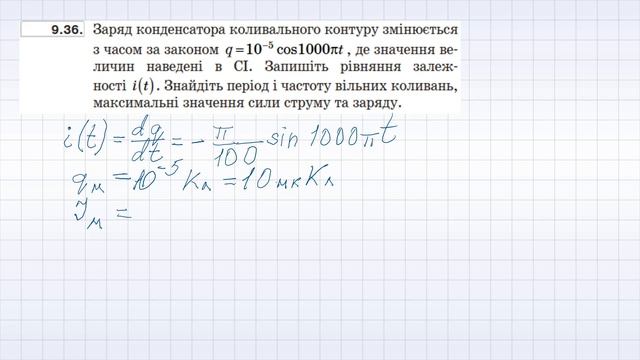 9.36. Заряд конденсатора коливального контуру змінюється
з часом за законом q = 10⁻⁵ cos1000πt, де значення ве-
личин наведені в СІ. Запишіть рівняння залеж-
ності i(t). Знайдіть період і частоту вільних коливань,
максимальні значення сили струму та заряду.
i(t) = dq/dt = - π/100 sin 1000πt
qм = 10⁻⁵ Кл = 10 мкКл
Iм =